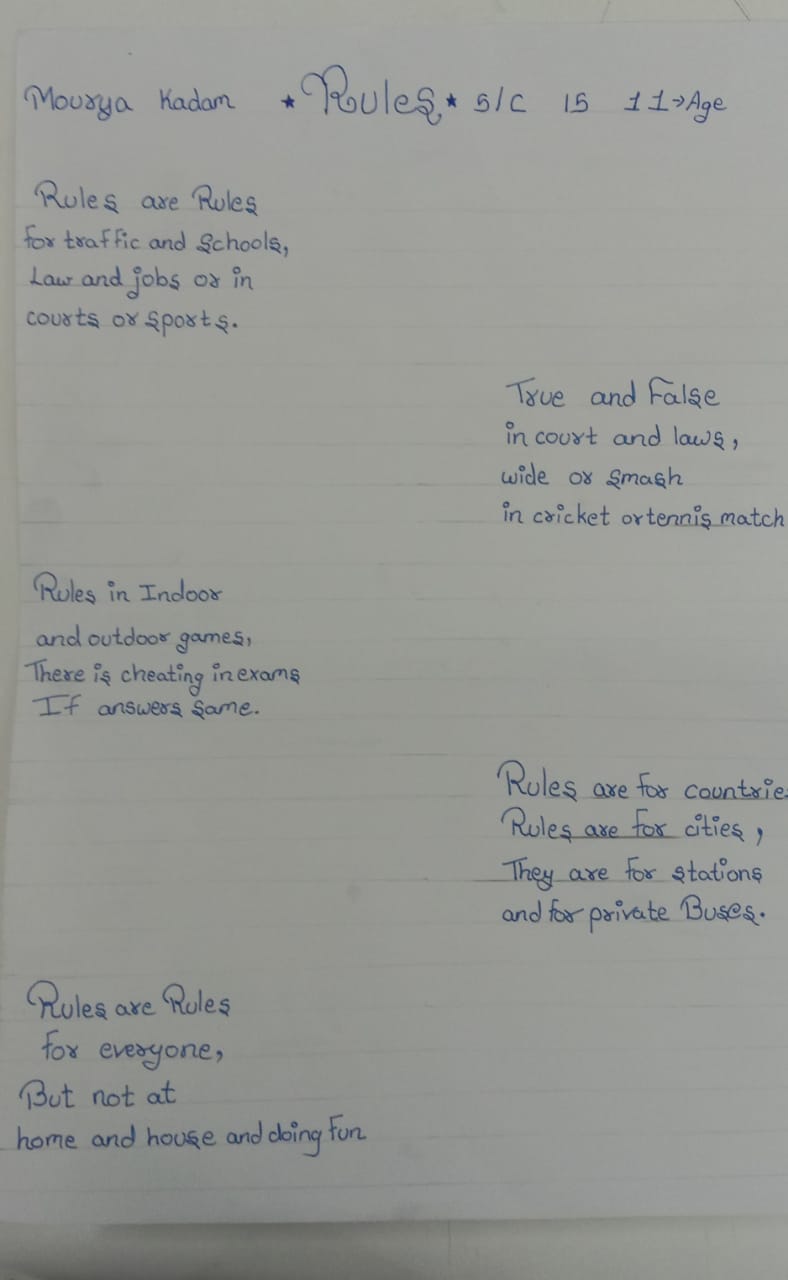 Mourya Kadam ★ Rules ★ 5/C 15 11→Age
Rules are Rules
for traffic and schools,
Law and jobs or in
courts or sports.
True and False
in court and laws,
wide or smash
in cricket or tennis match
Rules in Indoor
and outdoor games,
There is cheating in exams
If answers same.
Rules are for countrie
Rules are for cities,
They are for stations
and for private Buses.
Rules are Rules
for everyone,
But not at
home and house and doing fun